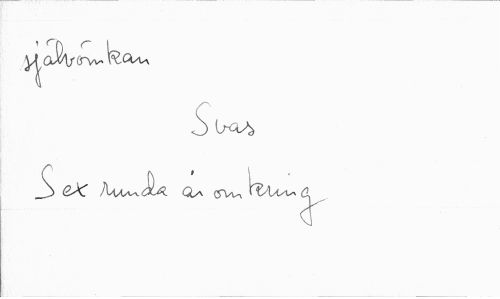 självömkan
Svas
Sex runda år omkring